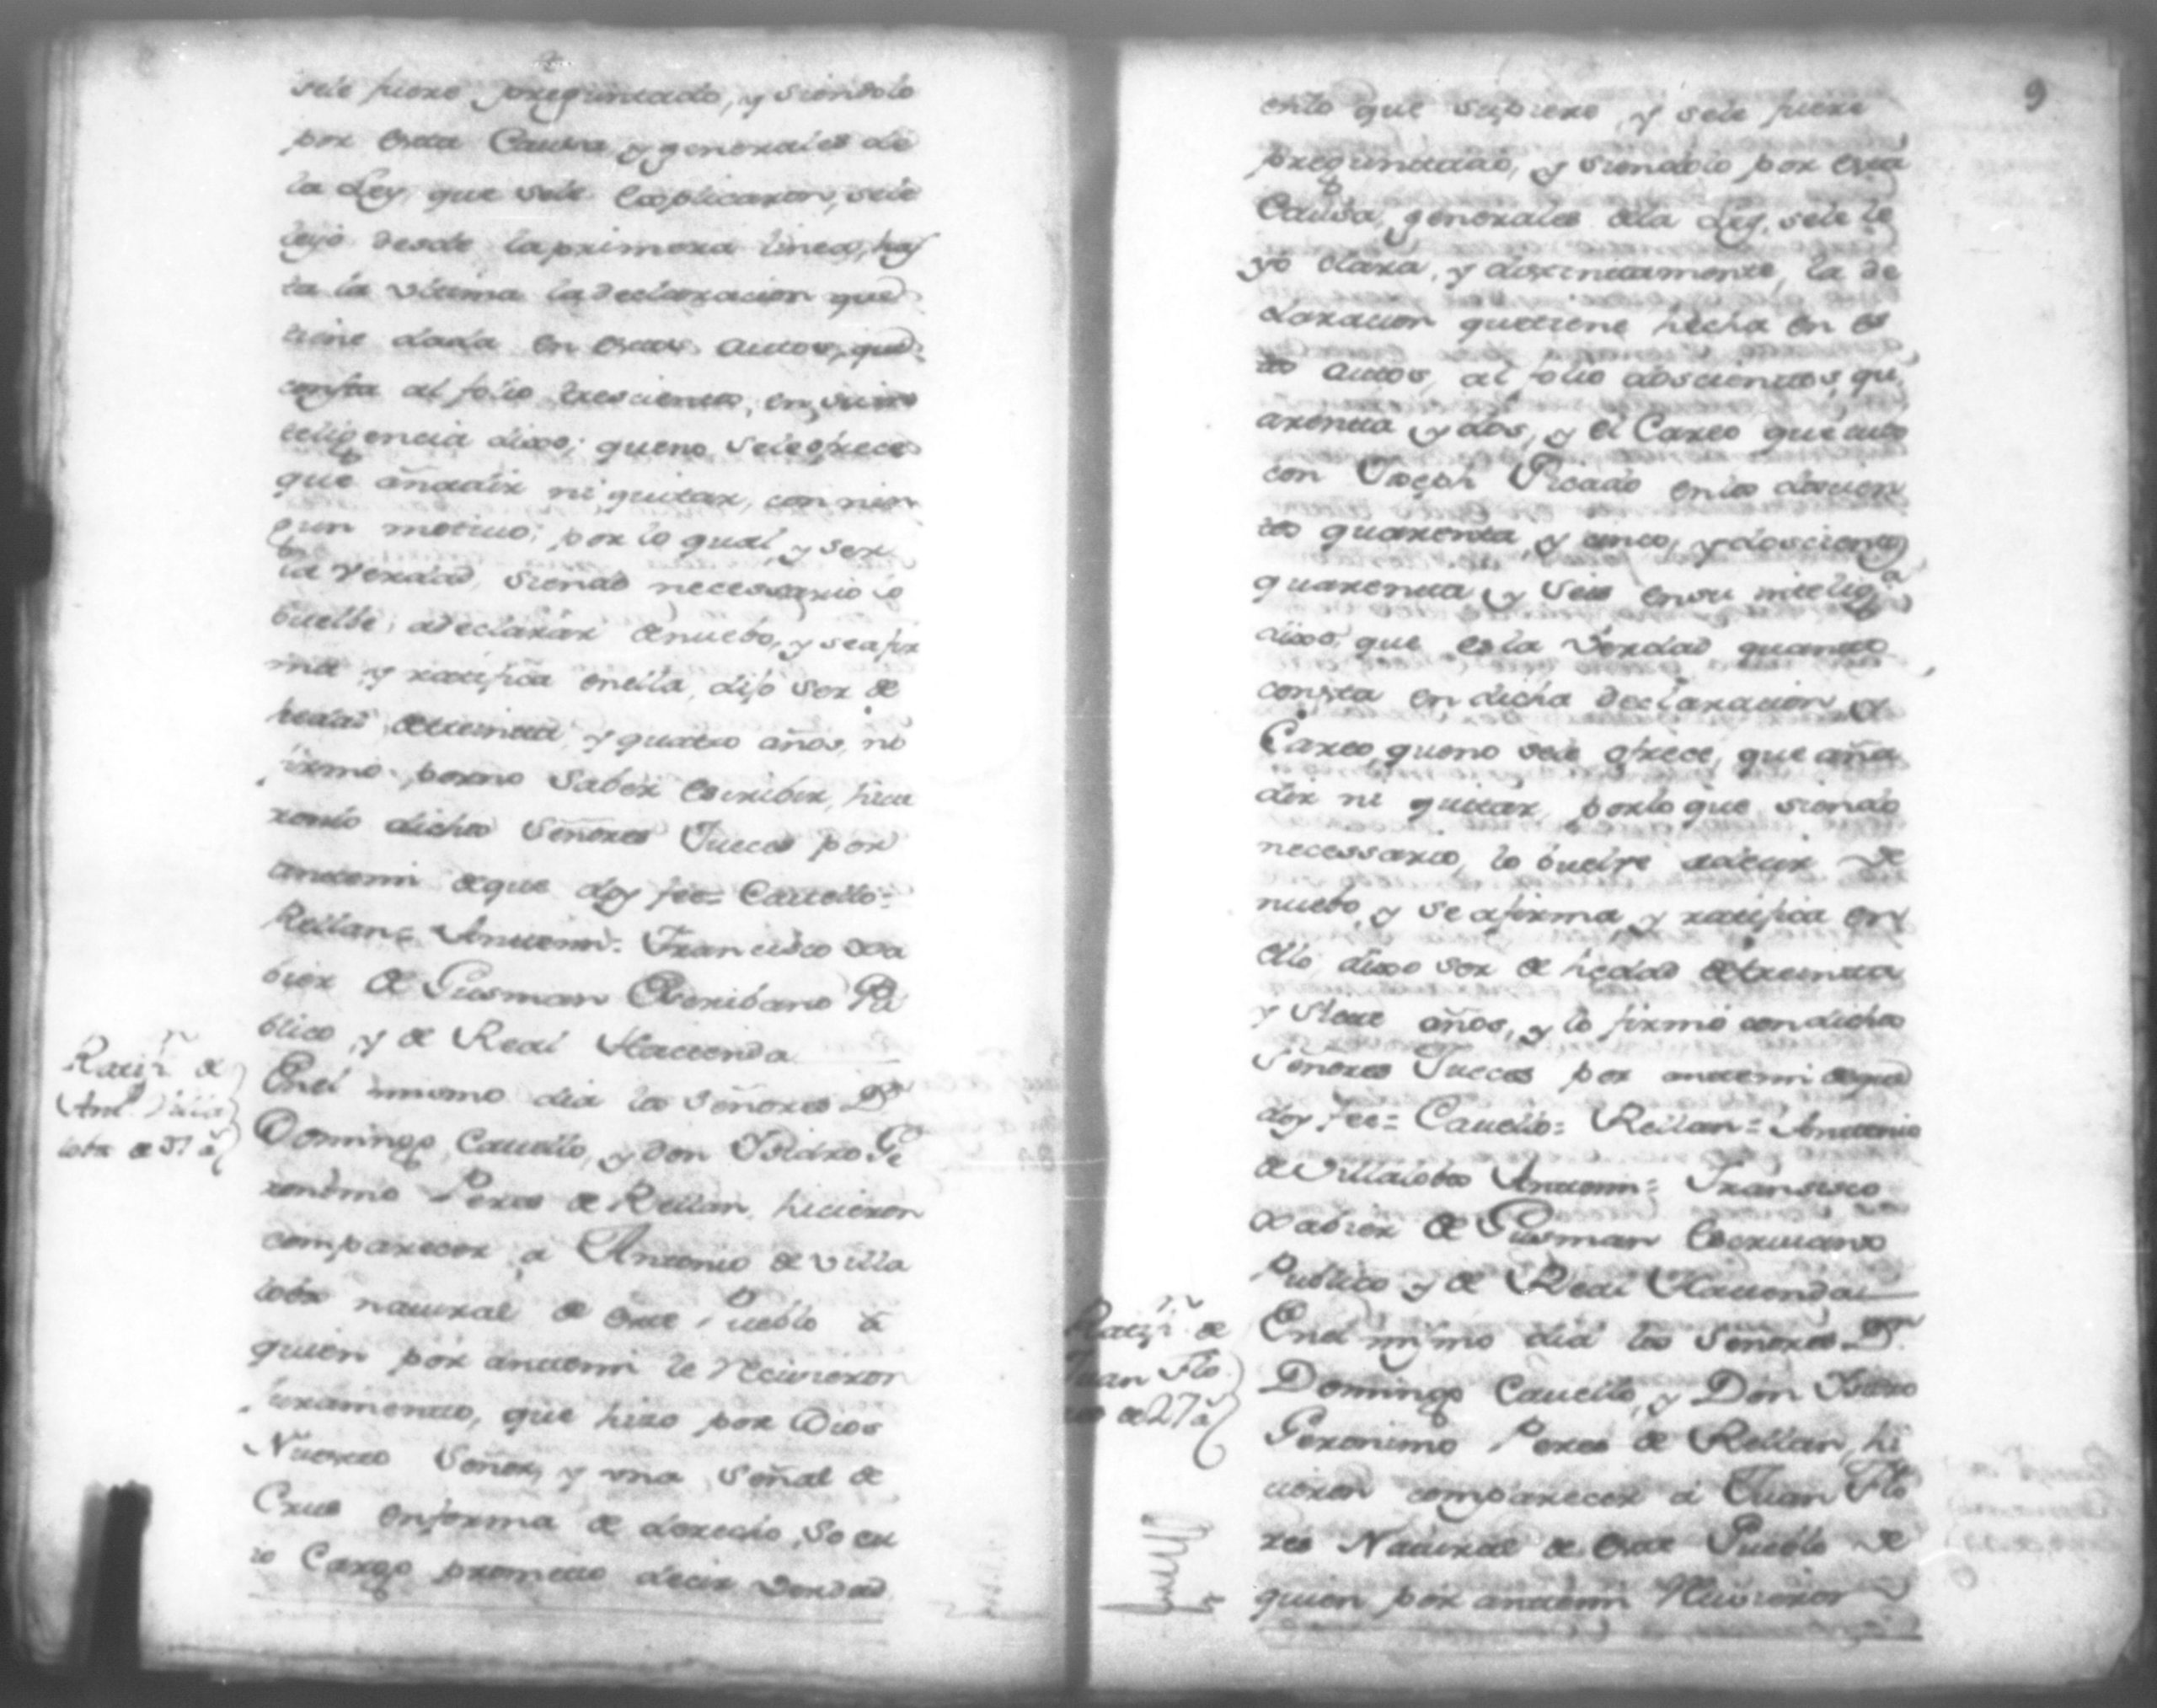 sele fuere preguntado, y siendolo
por esta Causa y generales de
la Ley que sele explicaron, sele
leyó desde la primera linea, has
ta la vltima la declaracion que
tiene dada en estos autos, que
consta al folio trescientos, en su in
teligencia dixo; queno sele ofrece
que añadir ni quitar, con nin
gun motiuo; por lo qual, y ser
la verdad, siendo necessario lo
buelbe adeclarar denuebo, y seafir
ma y ratifica enella, dijo ser de
hedad detreinta y quatro años, no
firmo porno saber escribir, hicie
ronlo dichos Señores Jueces por
antemi deque doy fee= Cauello=
Rellan= Antemi= Francisco Xa
bier de Gusman Escribano Pu
blico y de Real Hacienda
Ratifn de
Anto Villa
lobs de 37 as
Enel mismo dia los Señores Dn
Domingo Cauello, y don Isidro Ge
ronimo Peres de Rellan, hicieron
comparecer a Antonio de Villa
lobs natural de este Pueblo a
quien por antemi le Reciuieron
Juramento, que hizo por Dios
Nuestro Señor, y vna señal de
Crus enforma de derecho, so cu
io Cargo prometio decir verdad
9
enlo que supiere, y sele fuere
preguntado, y siendolo por esta
Causa, generales dela Ley, sele le
yo clara, y distintamente, la de
claracion quetiene hecha en es
tos autos, al folio doscientos, qu
arenta y dos, y el Careo que tubo
con Joseph Picado enlos docien
tos quarenta y cinco, y doscientos
quarenta y seis ensu inteliga
dixo, que es la verdad quanto
consta en dicha declaracion y
Careo, queno sele ofrece, que aña
dir ni quitar, porlo que siendo
necessario, lo buelve adecir de
nuebo, y se afirma, y ratifica en
ello, dixo ser de hedad detreinta
y siete años, y lo firmó con dichos
Señores Jueces por antemi deque
doy fee= Cauello= Rellan= Antonio
de Villalobos Antemi= Fransisco
Xabier de Gusman Escriuano
Publico y de Real Hacienda
Ratifn de
Juan Flo
res de 27 as
Enel mismo dia los Señores Dn
Domingo Cauello, y Don Isidro
Geronimo Peres de Rellan, hi
cieron comparecer á Juan Flo
res Natural de este Pueblo de
quien por antemi Reciuieron